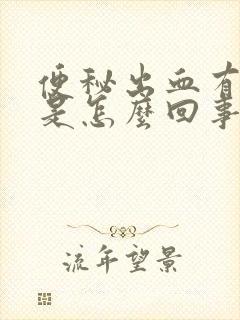 便秘出血有
是怎麼回事
流年望景